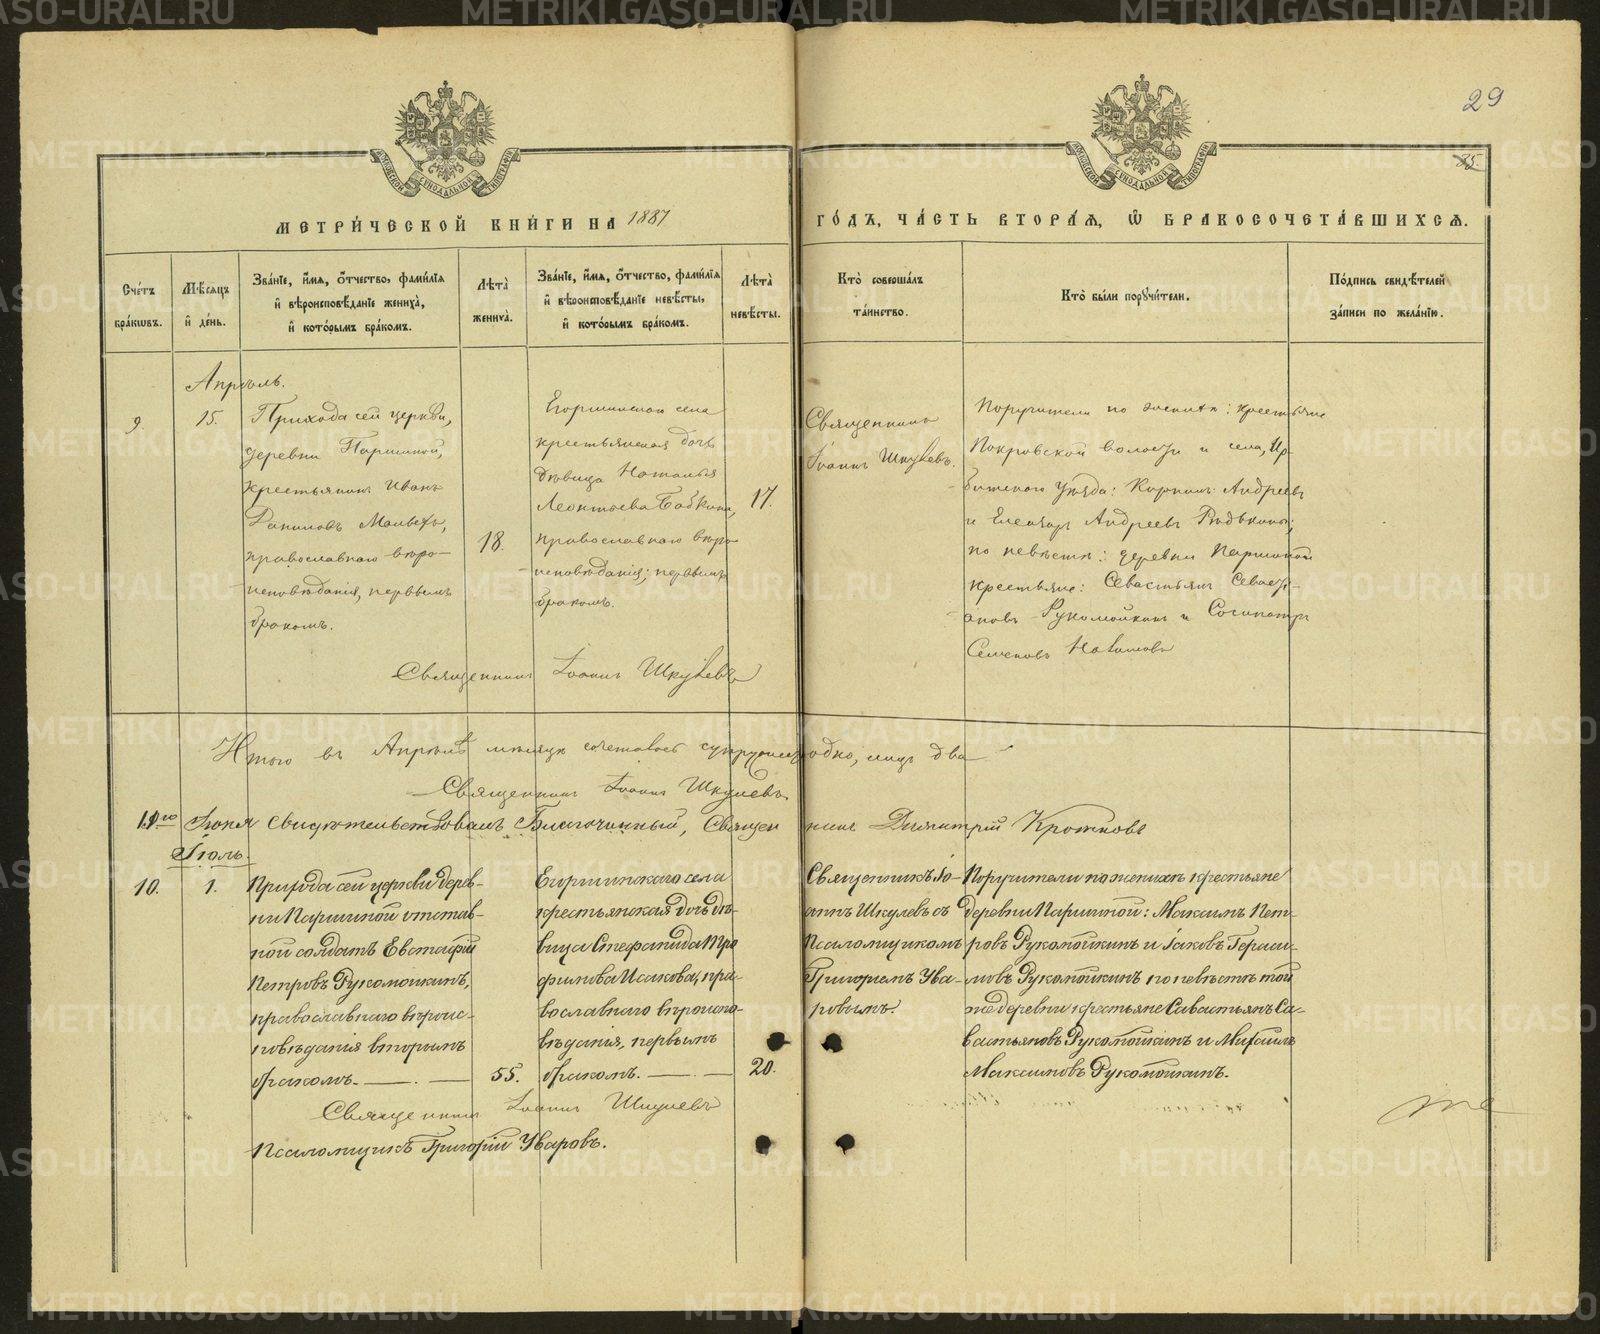 29
85.
МОСКОВСКОЙ СУНОДАЛЬНОЙ ТИПОГРАФІИ
МОСКОВСКОЙ СУНОДАЛЬНОЙ ТИПОГРАФІИ
МЕТРИ́ЧЕСКОЙ КНИ́ГИ НА 1887 ГО́ДЪ, ЧА́СТЬ ВТОРА́Я, Ѡ҆ БРАКОСОЧЕТА́ВШИХСѦ.
Сче́тъ бра́кѡвъ.
Мѣ́сяцъ и҆ де́нь.
Зва́нїе, и҆́мя, ѻ҆́тчество, фами́лїя и҆ вѣроисповѣ́данїе жениха̀, и҆ кото́рымъ бра́комъ.
Лѣта̀ жениха̀.
Зва́нїе, и҆́мя, ѻ҆́тчество, фами́лїя и҆ вѣроисповѣ́данїе невѣ́сты, и҆ кото́рымъ бра́комъ.
Лѣта̀ невѣ́сты.
Кто̀ соверша́лъ та́инство.
Кто̀ бы́ли поручи́тели.
По́дпись свидѣ́телей за́писи по жела́нїю.
Апрѣль.
9.
15.
Прихода сей церкви,
деревни Паршиной,
крестьянинъ Иванъ
Даниловъ
православнаго вѣро-
исповѣданія, первымъ
бракомъ.
18.
Егоршинскаго села
крестьянская дочь
дѣвица Наталья
Леонтьева Бабкина,
православнаго вѣро-
исповѣданія; первымъ
бракомъ.
17.
Священникъ
Іоаннъ Шкулевъ.
Поручители по женихѣ: крестьяне
Покровской волости и села, Ир-
битскаго уѣзда: Карпъ Андреевъ
и Елеазаръ Андреевъ
по невѣстѣ: деревни Паршиной
крестьяне: Севастьянъ Севасть-
ановъ Рукомойкинъ и Сосипатръ
Семеновъ
Священникъ Іоаннъ Шкулевъ
Итого въ Апрѣлѣ мѣсяцѣ сочеталось супружество одно, лицъ два
Священникъ Іоаннъ Шкулевъ
11го Іюня свидѣтельствовалъ Благочинный, Священникъ Димитрій Кротковъ
Іюль.
10.
1.
Прихода сей церкви дерев-
ни Паршиной отстав-
ной солдатъ Евстафій
Петровъ Рукомойкинъ,
православнаго вѣроис-
повѣданія вторымъ
бракомъ.
55.
Егоршинскаго села
крестьянская дочь дѣ-
вица Стефанида Про-
фимова Исакова, пра-
вославнаго вѣроиспо-
вѣданія, первымъ
бракомъ.
20.
Священникъ Іо-
аннъ Шкулевъ съ
Псаломщикомъ
Григоріемъ Ува-
ровымъ.
Поручители по женихѣ крестьяне
деревни Паршиной: Максимъ Пет-
ровъ Рукомойкинъ и Іаковъ Гераси-
мовъ Рукомойкинъ по невѣстѣ той
же деревни крестьяне Савастьянъ Са-
вастьяновъ Рукомойкинъ и Михаилъ
Максимовъ Рукомойкинъ.
Священникъ Іоаннъ Шкулевъ
Псаломщикъ Григорій Уваровъ.
METRIKI.GASO-URAL.RU